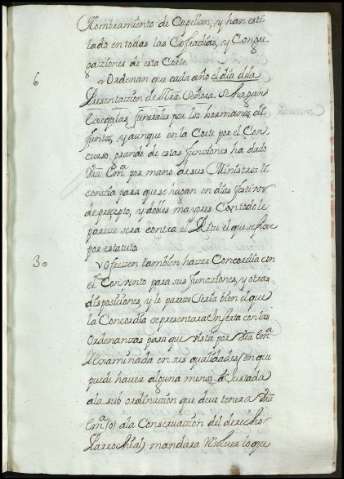 Nombramiento de Capellan, y han esti
lado en todas las Cofradias, y Congre
gaciones de esta Corte
6 Ordenan que cada año el dia dela
Presentacion de Ntra Señora, se hagan
funerales por los hermanos di
funtos, y aunque en la Corte por el Con
curso, para de estas funciones ha dado
Ema por mano de sus Ministros li
cencia para que se hagan en dias festivos
de precepto, y dobles mayores Con todo le
parece sera contra el Ritu el que se
por estatuto
30 Ofrecen tambien hacer Concordia con
el Convento para sus funciones, y otras
disposiciones, y le parece seria bien el que
la Concordia se presentara inserta con las
Ordenanzas para que vista por Ema
y examinada en sus qualidades en que
puede haver alguna menos ajustada
ala subordinacion que deve tener a
Ema o ala Conservacion del derecho
Parrochial, mandara resolver lo que